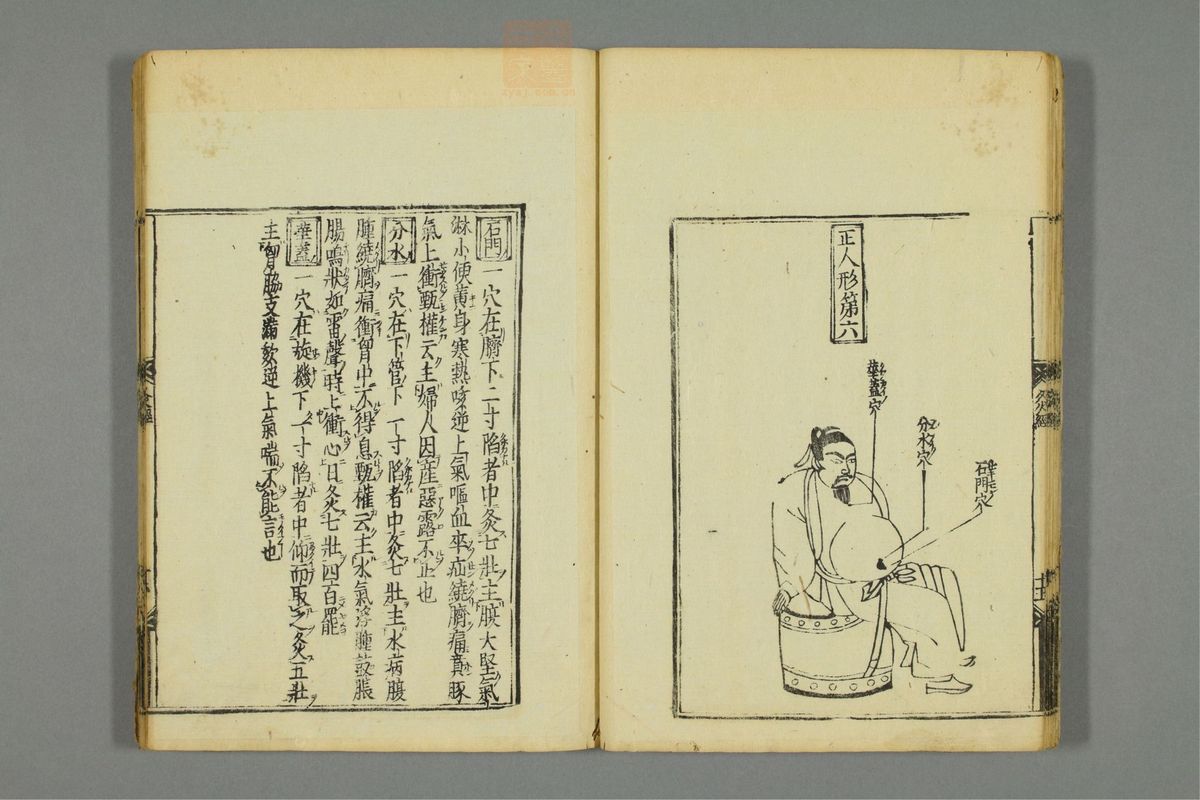 正人形第六
石門穴
分水穴
華蓋穴
灸經
石門 一穴在臍下二寸陷者中灸七壯主腹大堅氣
淋小便黃身寒熱咳逆上氣嘔血卒疝繞臍痛賁豚
氣上衝甄權云主婦人因産惡露不止也
分水 一穴在下管下一寸陷者中灸七壯主水病腹
腫繞臍痛衝胷中不得息甄權云主水氣浮腫鼓脹
腸鳴狀如雷聲時上衝心日灸七壯四百罷
華蓋 一穴在旋機下一寸陷者中仰而取之灸五壯
主胷脇支滿欬逆上氣喘不能言也
zysj.com.cn